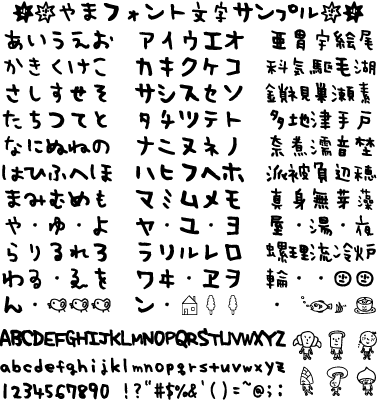 やまフォント文字サンプル
あいうえお アイウエオ 亜胃宇絵尾
かきくけこ カキクケコ 科気駆毛湖
さしすせそ サシスセソ 鎖視巣瀬素
たちつてと タチツテト 多地津手戸
なにぬねの ナニヌネノ 奈煮濡音埜
はひふへほ ハヒフヘホ 派被負辺穂
まみむめも マミムメモ 真身無芽藻
や・ゆ・よ ヤ・ユ・ヨ 屋・湯・夜
らりるれろ ラリルレロ 螺理流冷炉
わゐ・ゑを ワヰ・ヱヲ 輪・・
ん・ ン・ ・
ABCDEFGHIJKLMNOPQRSTUVWXYZ
abcdefghijklmnopqrstuvwxyz
1234567890 !?"#$%&'()=~@;: